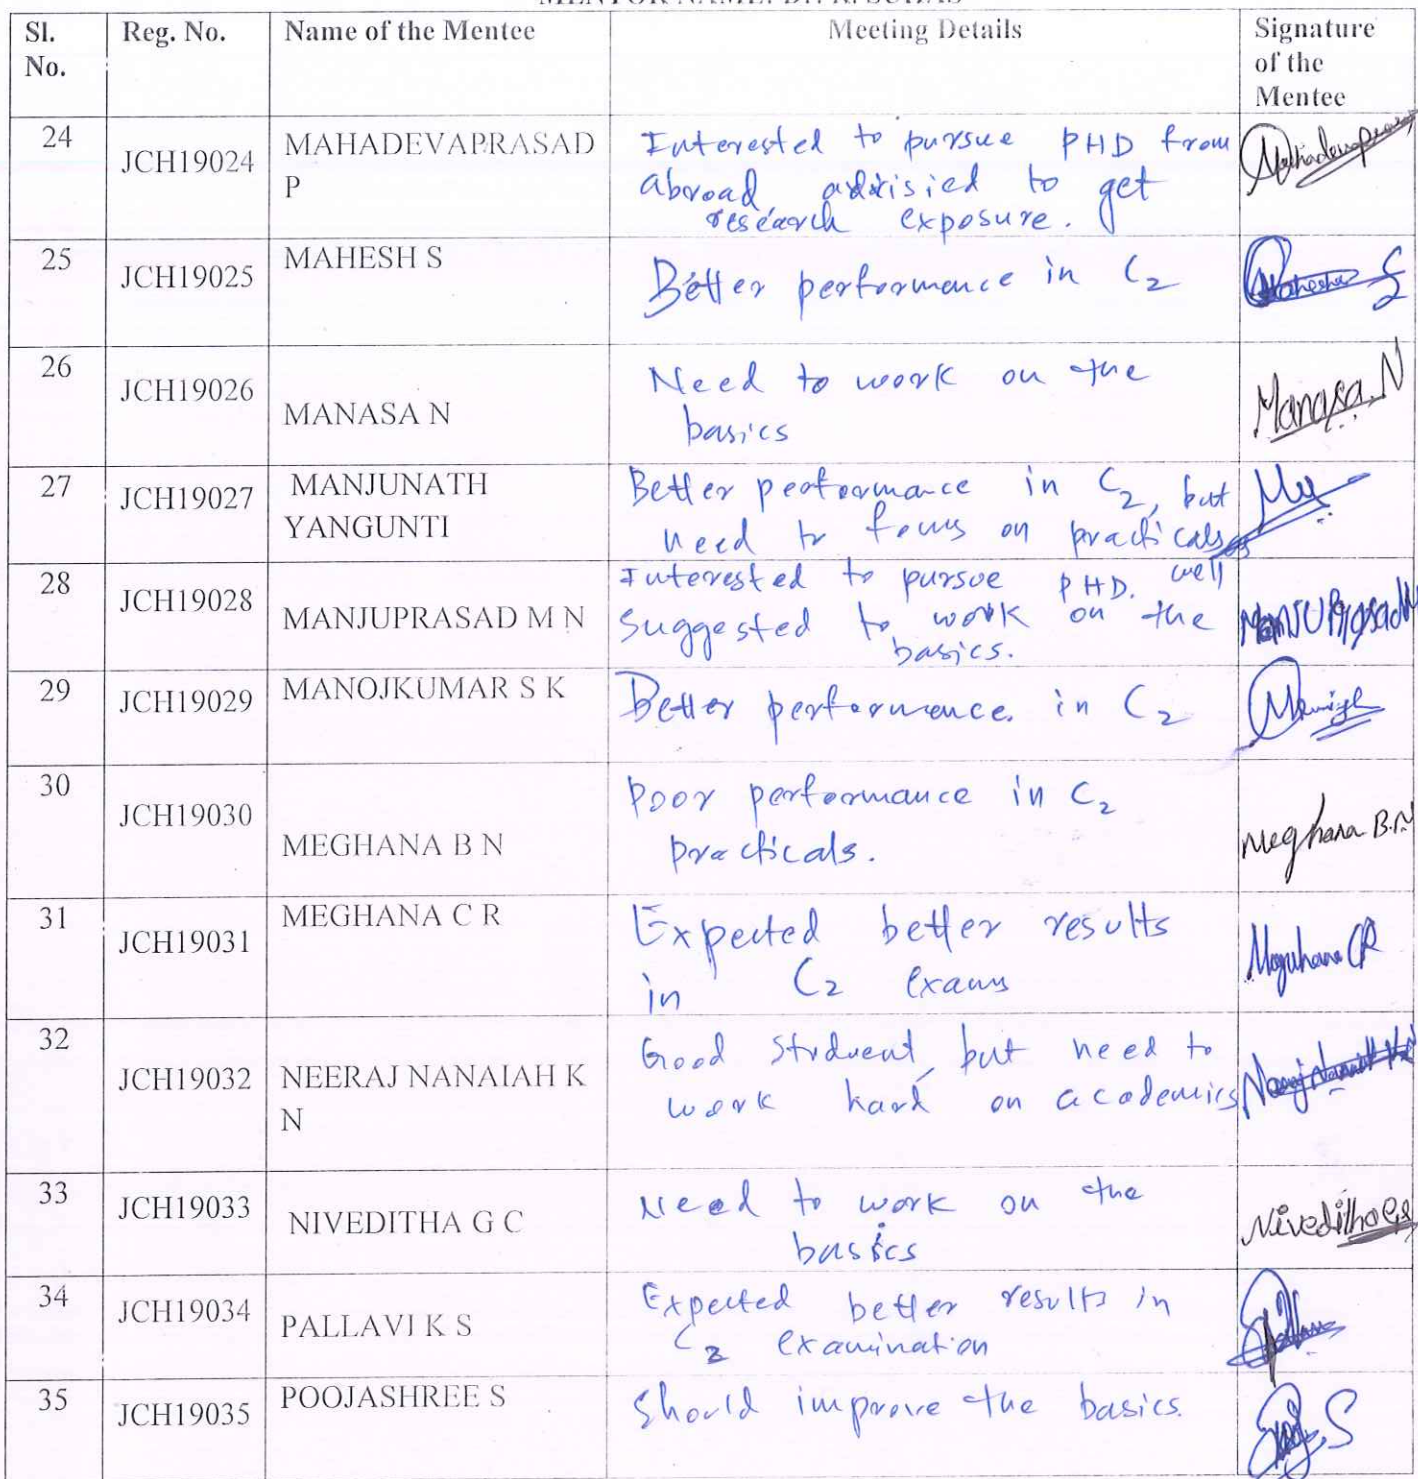 Sl. No. Reg. No. Name of the Mentee Meeting Details Signature of the Mentee
24 JCH19024 MAHADEVAPRASAD P
Interested to pursue PHD from
abroad, addrisied to get
research exposure.
25 JCH19025 MAHESH S
Better performance in C2
26 JCH19026 MANASA N
Need to work on the
basics
Manasa.N
27 JCH19027 MANJUNATH YANGUNTI
Better performance in C2, but
need to focus on practicals as
well
28 JCH19028 MANJUPRASAD M N
Interested to pursue PHD.
Suggested to work on the
basics.
29 JCH19029 MANOJKUMAR S K
Better performance. in C2
30 JCH19030 MEGHANA B N
Poor performance in C2
practicals.
Meghana B.N
31 JCH19031 MEGHANA C R
Expected better results
in C2 exams
Meghana CR
32 JCH19032 NEERAJ NANAIAH K N
Good Strdvent, but need to
work hard on academics
33 JCH19033 NIVEDITHA G C
Need to work on the
basics
34 JCH19034 PALLAVI K S
Expected better results in
C2 examination
35 JCH19035 POOJASHREE S
Should improve the basics.